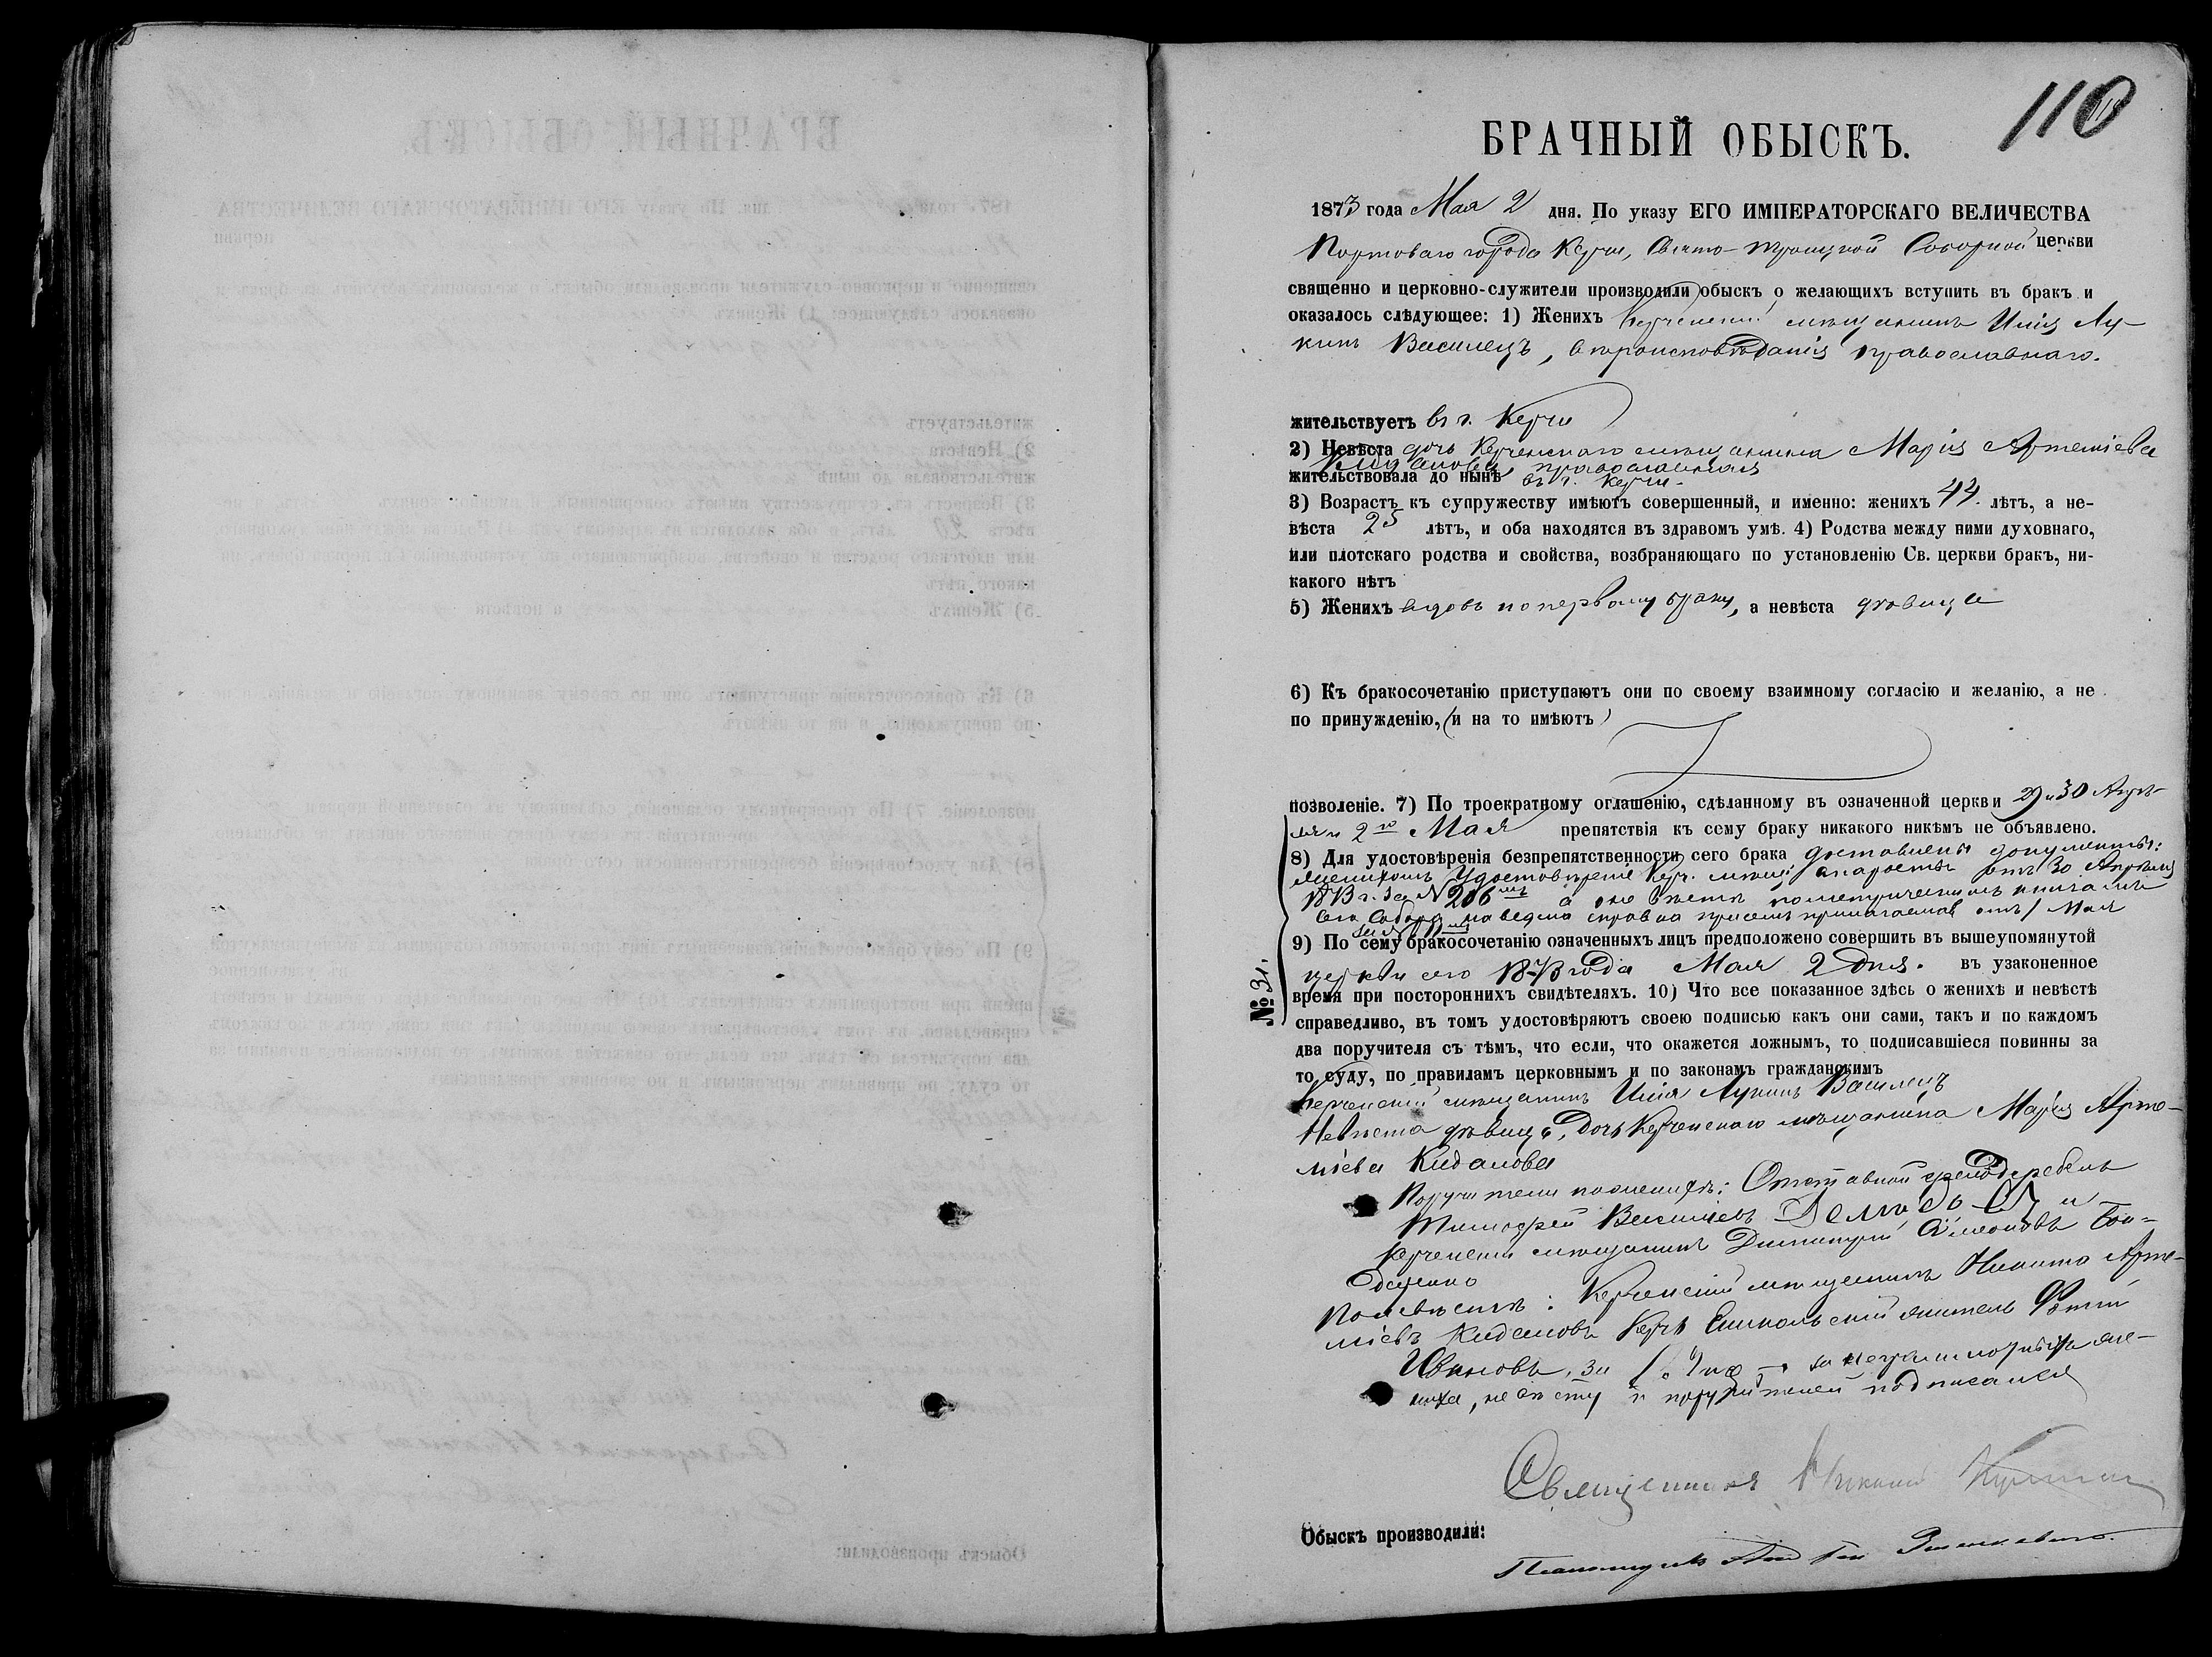 110
БРАЧНЫЙ ОБЫСКЪ.
1873 года Мая 2 дня. По указу ЕГО ИМПЕРАТОРСКАГО ВЕЛИЧЕСТВА
Портоваго города Керчи, Свято-Троицкой Соборной церкви
священно и церковно-служители производили обыскъ о желающихъ вступить въ бракъ и
оказалось слѣдующее: 1) Женихъ Керченскій мѣщанинъ Илія Лу-
кинъ Василецъ, вѣроисповѣданія православнаго.
жительствуетъ въ г. Керчи
2) Невѣста дочь Керченскаго мѣщанина Марія Артеміева
Кидалова, православная
жительствовала до нынѣ въ г. Керчи.
3) Возрастъ къ супружеству имѣютъ совершенный, и именно: женихъ 44 лѣтъ, а не-
вѣста 25 лѣтъ, и оба находятся въ здравомъ умѣ. 4) Родства между ними духовнаго,
или плотскаго родства и свойства, возбраняющаго по установленію Св. церкви бракъ, ни-
какого нѣтъ
5) Женихъ вдовъ по первому браку, а невѣста дѣвица
6) Къ бракосочетанію приступаютъ они по своему взаимному согласію и желанію, а не
по принужденію, (и на то имѣютъ)
позволеніе. 7) По троекратному оглашенію, сдѣланному въ означенной церкви 29 и 30 Апрѣ-
ля и 2го Мая препятствія къ сему браку никакого никѣмъ не объявлено.
8) Для удостовѣренія безпрепятственности сего брака доставлены документы:
женихомъ Удостовѣреніе Керч. мѣщ. старосты отъ 30 Апрѣля
1873 г. за № 206 а о невѣстѣ по метрическимъ книгамъ
сего Собора наведена справка при семъ прилагаемая отъ 1 Мая
за №
9) По сему бракосочетанію означенныхъ лицъ предположено совершить въ вышеупомянутой
церкви сего 1873 года Мая 2 дня. въ узаконенное
№ 31.
время при постороннихъ свидѣтеляхъ. 10) Что все показанное здѣсь о женихѣ и невѣстѣ
справедливо, въ томъ удостовѣряютъ своею подписью какъ они сами, такъ и по каждомъ
два поручителя съ тѣмъ, что если, что окажется ложнымъ, то подписавшіеся повинны за
то суду, по правиламъ церковнымъ и по законамъ гражданскимъ
Керченскій мѣщанинъ Илія Лукинъ Василецъ
Невѣста дѣвица, дочь Керченскаго мѣщанина Марія Арте-
міева Кидалова
Поручители по женихѣ: Отставной
Тимофей Васильевъ и
Керченскій мѣщанинъ Димитрій Симеоновъ Бон-
даренко
По невѣстѣ: Керченскій мѣщанинъ Никита Арте-
міевъ Кидаловъ Керчь Еникольскій житель Фотій
Ивановъ, за неграмотныхъ же-
ниха, невѣсту и поручителей подписался
Священникъ Николай
Обыскъ производили: